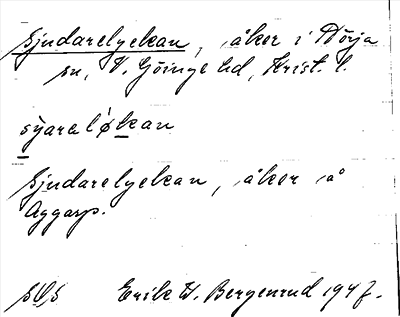 Sjudarelyckan, åker i Nörja
sn, V. Göinge hd, Krist. l.
syaralǿkan
Sjudarelyckan, åker på
Aggarp.
SOS Erik W. Bergenrud 1947.